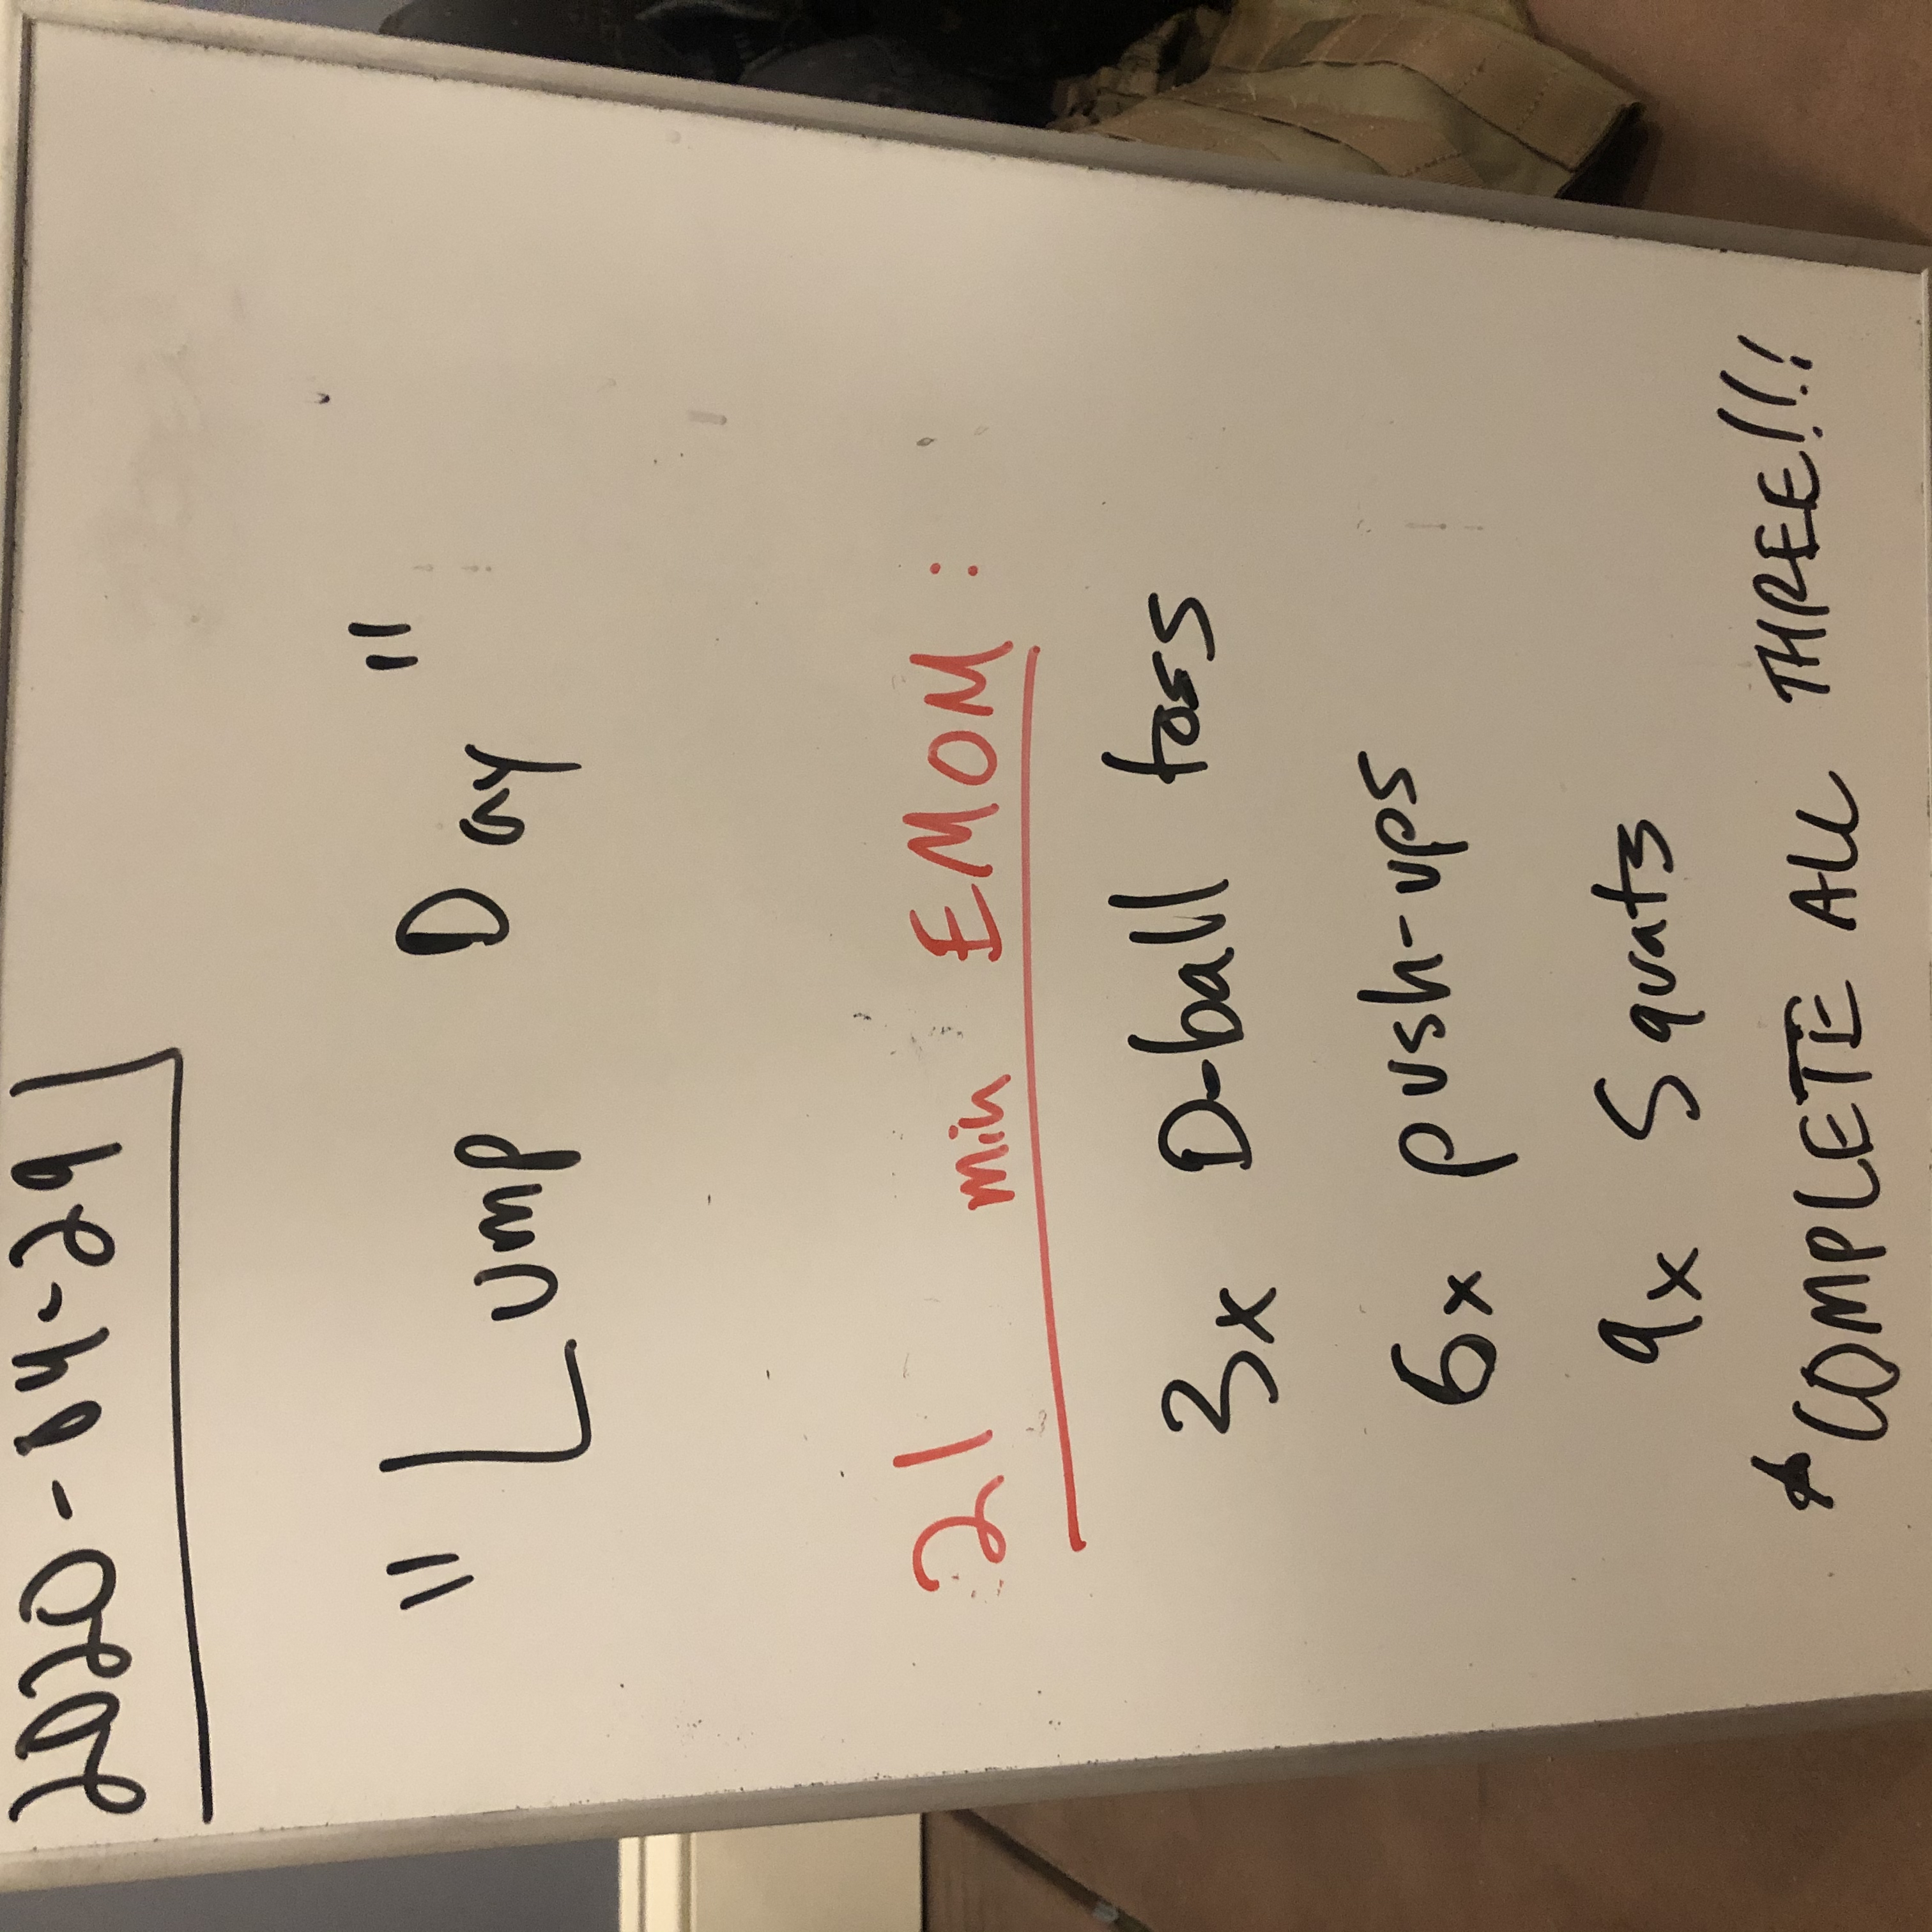 2020-04-29
"Lump Day"
21 min EMOM:
3x D-ball toss
6x push-ups
9x Squats
*COMPLETE ALL THREE!!!